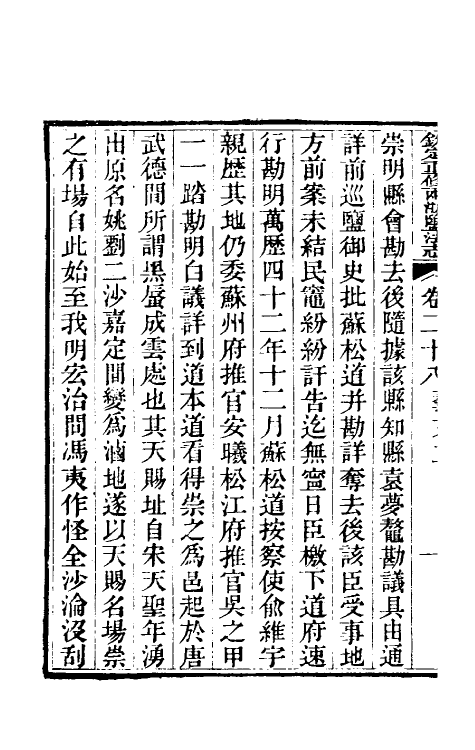 欽定重修兩浙鹽法志 卷二十八 藝文二 一
崇明縣會勘去後隨據該縣知縣袁夢鼇勘議具由通
詳前巡鹽御史批蘇松道幷勘詳奪去後該臣受事地
方前案未結民竈紛紛訐告迄無寧日臣檄下道府速
行勘明萬歷四十二年十二月蘇松道按察使俞維宇
親歷其地仍委蘇州府推官安曦松江府推官吳之甲
一一踏勘明白議詳到道本道看得崇之爲邑起於唐
武德間所謂黑蜃成雲處也其天賜址自宋天聖年湧
出原名姚劉二沙嘉定間變爲滷地遂以天賜名場崇
之有場自此始至我明宏治間馮夷作怪全沙淪沒刮